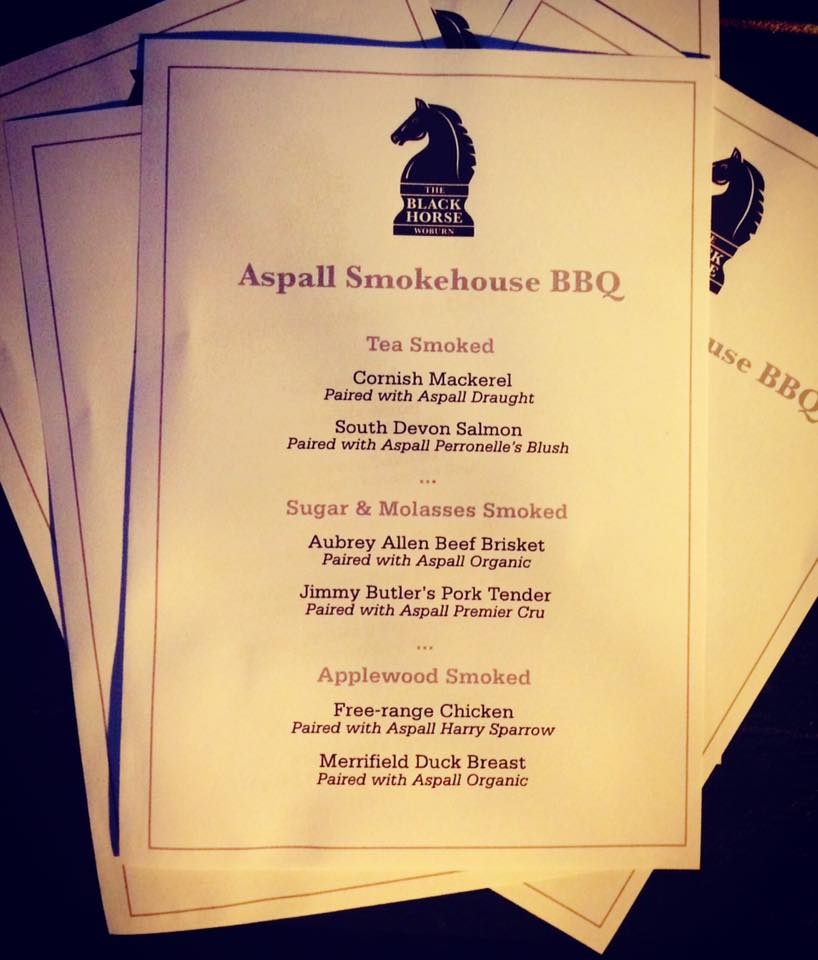 THE
BLACK
HORSE
WOBURN
Aspall Smokehouse BBQ
Tea Smoked
Cornish Mackerel
Paired with Aspall Draught
South Devon Salmon
Paired with Aspall Perronelle's Blush
...
Sugar & Molasses Smoked
Aubrey Allen Beef Brisket
Paired with Aspall Organic
Jimmy Butler's Pork Tender
Paired with Aspall Premier Cru
...
Applewood Smoked
Free-range Chicken
Paired with Aspall Harry Sparrow
Merrifield Duck Breast
Paired with Aspall Organic
use BBQ